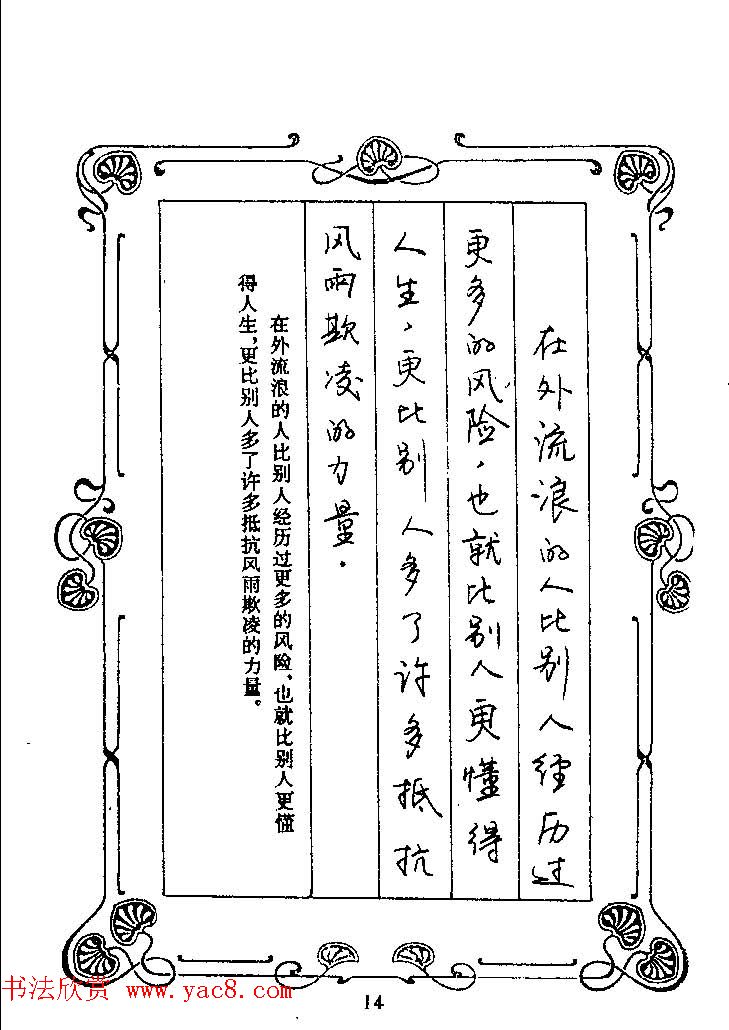 在外流浪的人比别人经历过
更多的风险，也就比别人更懂得
人生，更比别人多了许多抵抗
风雨欺凌的力量．
在外流浪的人比别人经历过更多的风险，也就比别人更懂
得人生，更比别人多了许多抵抗风雨欺凌的力量。
书法欣赏 www.yac8.com
14